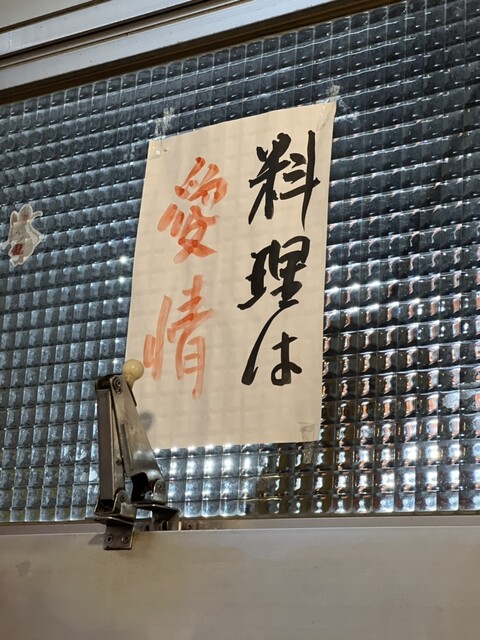 料理は
愛情